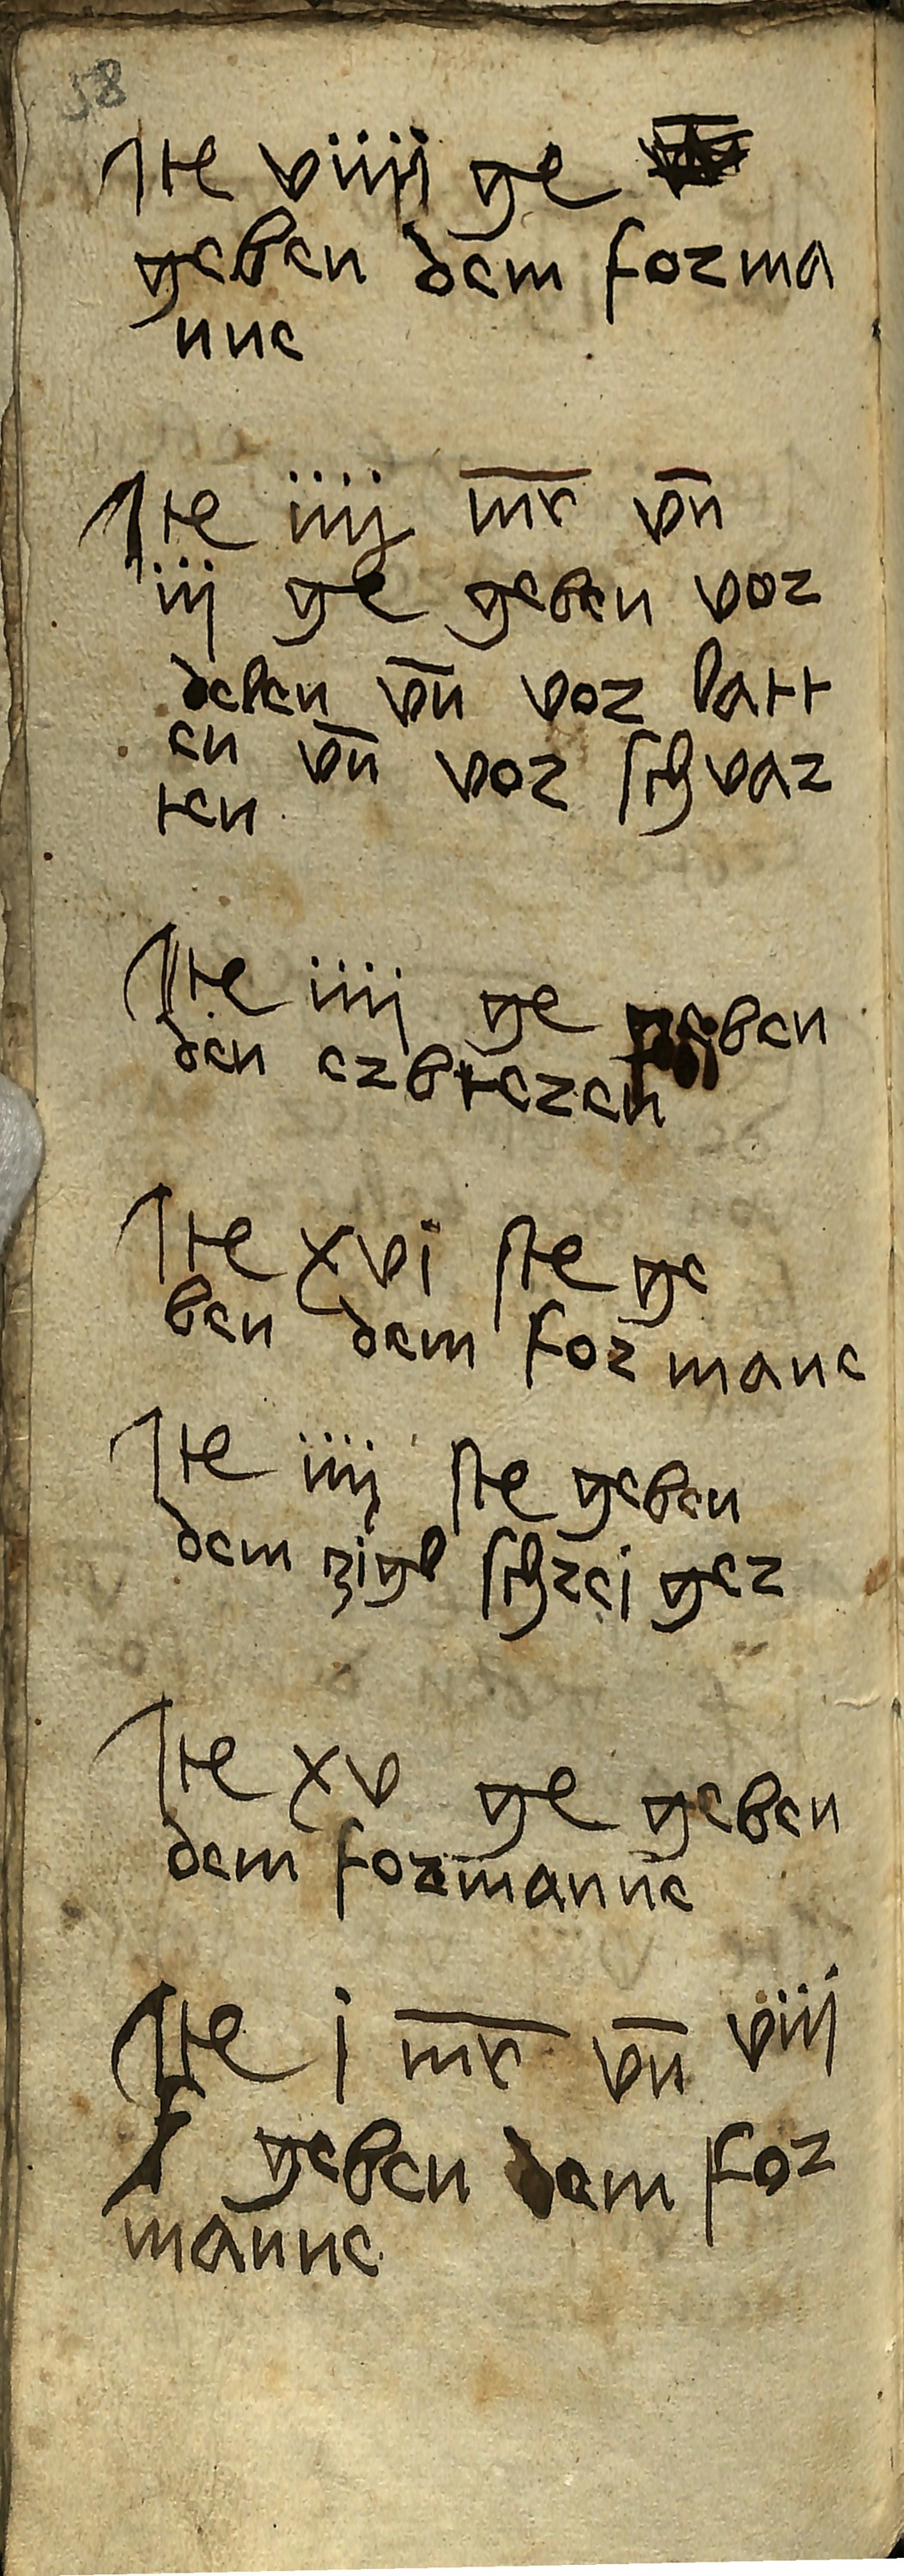 58
Ite viiij ge
geben dem forma
nne
Ite iiij mr vn
iij ge geben vor
delen vn vor latt
en vn vor schvar
ten
Ite iiij ge geben
den erbteren
Ite xvi ste ge
ben dem for mane
Ite iiij ste geben
dem zigl schrei ger
Ite xv ge geben
dem formanne
Ite j mr vn viij
geben dem for
manne